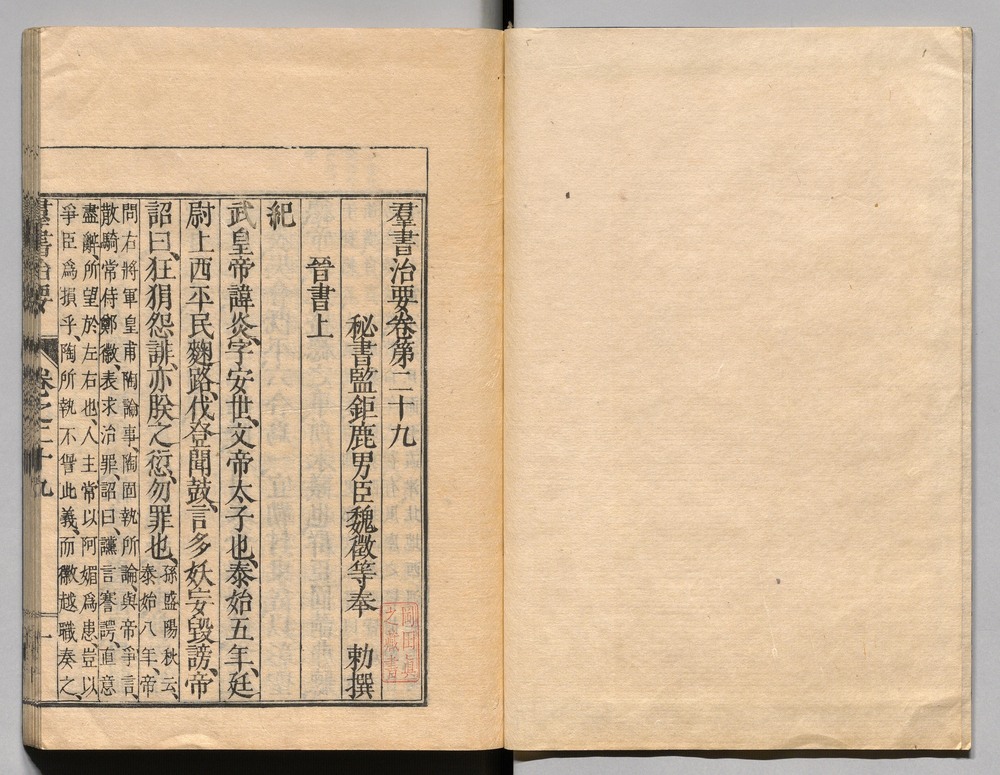 羣書治要卷第二十九
秘書監鉅鹿男臣魏徵等奉　勅撰
晉書上
紀
武皇帝諱炎、字安世、文帝太子也、泰始五年、廷
尉上西平民麴路、伐登聞鼓、言多妖妄毀謗、帝
詔曰、狂狷怨誹、亦朕之愆、勿罪也、
孫盛陽秋云、
泰始八年、帝
問右將軍皇甫陶論事、陶固執所論、與帝爭言、
散騎常侍鄭徽、表求治罪、詔曰、讜言謇諤、直意
盡辭、所望於左右也、人主常以阿媚爲患、豈以
爭臣爲損乎、陶所執不愆此義、而徽越職奏之、
羣書治要
卷之二十九
一